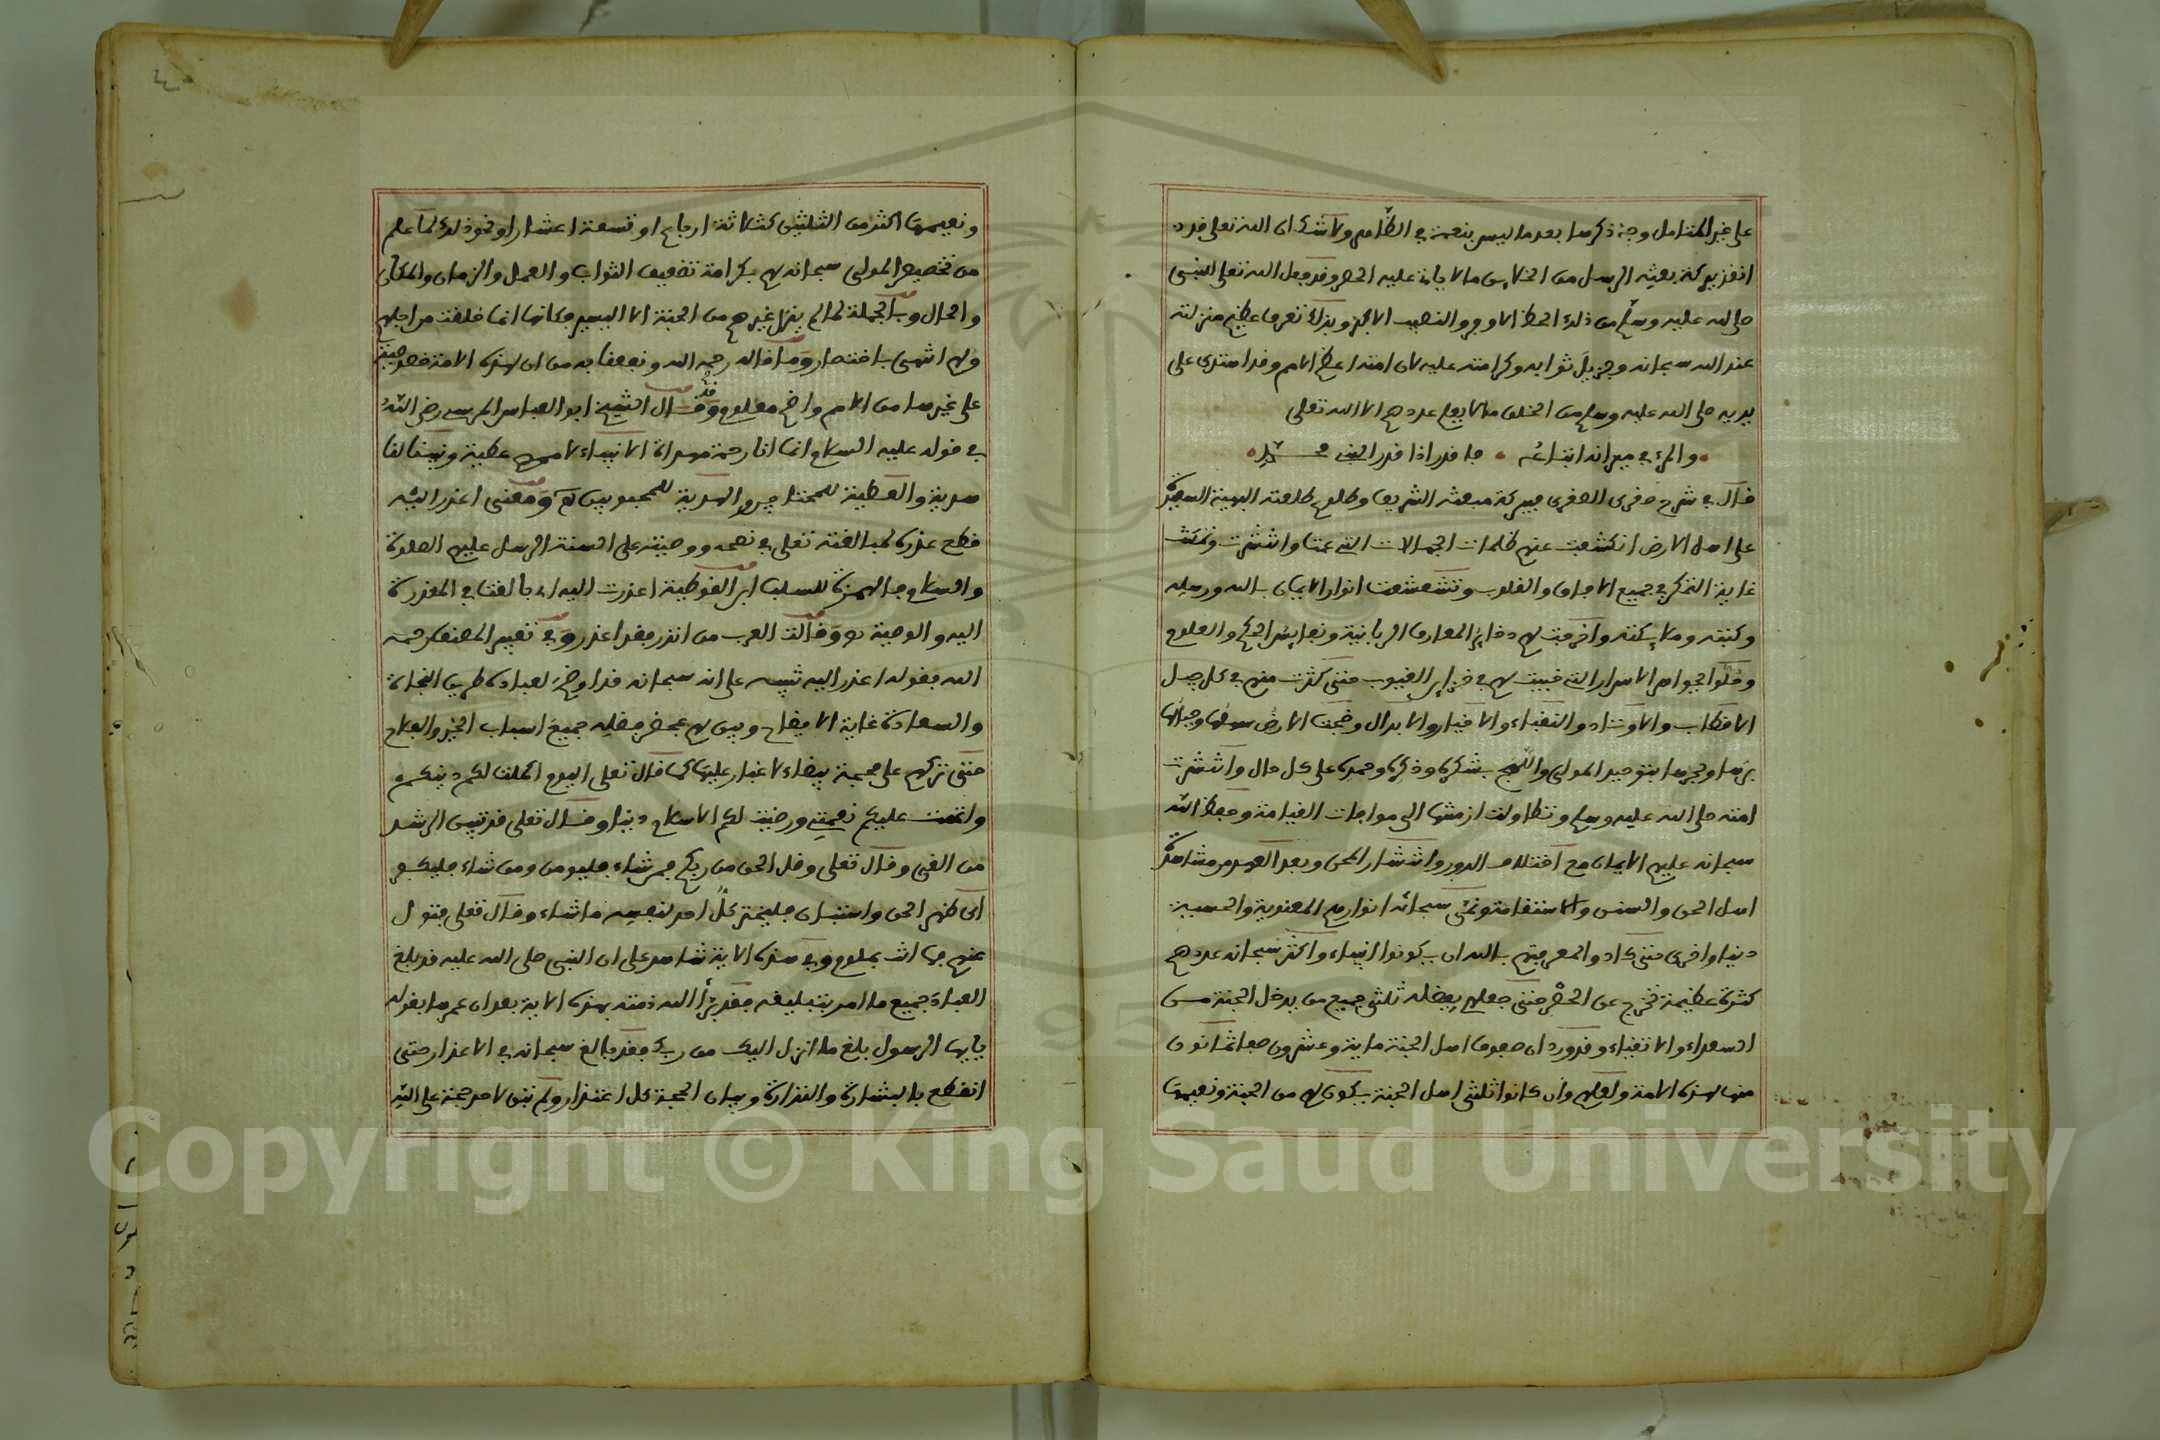 على غير المتامل وجه ذكرها بعدما ليس بنعمة في الظاهر ولا شك ان الله تعلى قد
انقذ ببركة بعثه الرسل من الخلايق ما لا ياتي عليه الحصر وقد جعل الله تعلى للنبي
صلى الله عليه وسلم من ذلك الحظ الاوفر والنصيب الاكبر وبذلك تعرف عظيم منزلته
عند الله سبحانه وجزيل ثوابه وكرامته عليه لان امته اعظم الامم وقد اهتدى على
يديه صلى الله عليه وسلم من الخلق ما لا يعلم عددهم الا الله تعلى
والمرء في ميزانه اتباعه فاقدر اذا قدر النبي محمد
قال في شرح صغرى الصغرى فببركة مبعثه الشريف وطلوع طلعته البهية السعيدة
على اهل الارض انكشفت عنهم ظلمات الجهالات التي عمت وانتشرت وتمكنت
غاية التمكن في جميع الافاق والقلوب وتشعشعت انوار الايمان بالله ورسله
وكتبه وملايكته واخرجت لهم دفاين المعارف الربانية ونفايس الحكم والعلوم
وجواهر الاسرار التي خبيت لهم في خزاين الغيوب حتى كثرت منهم في كل جيل
الاقطاب والاوتاد والنقباء والاخيار والابدال وضجت الارض سهلها وجبالها
برها وبحرها بتوحيد المولى واللهج بشكره وذكره وحمده على كل حال وانتشرت
امته صلى الله عليه وسلم وتطاولت ازمنتها الى مواجات القيامة وحفظ الله
سبحانه عليهم الايمان مع اختلاف الدهور وانتشار المحن وبعد العهد من مشاهدة
اهل الحق والسنن والاستقامة ونمى سبحانه انوارهم المعنوية والحسية
دنيا واخرى حتى كادوا لمعرفتهم بالله ان يكونوا انبياء واكثر سبحانه عددهم
كثرة عظيمة تخرج عن الحصر حتى جعلهم بفضله ثلثي جميع من يدخل الجنة من
السعداء والاتقياء وقد ورد ان صفوف اهل الجنة ماية وعشرون صفا ثمانون
منها هذه الامة ولعلهم وان كانوا ثلثي اهل الجنة يكون لهم من الجنة ونعيمها
ونعيمها اكثر من الثلثين كثلاثة ارباع او تسعة اعشار او نحو ذلك لما علم
من تخصيص المولى سبحانه لهم بكرامة تضعيف الثواب والعمل والزمان والمكان
والحال وبالجملة لما لم ينل غيرهم من الجنة الا اليسير فكانها انما خلقت من اجلهم
ولهم انتهى باختصار وما قاله رحمه الله ونفعنا به من ان هذه الامة
على غيرها من الامم واضح معلوم وقد قال الشيخ ابو العباس المرسي رضي الله
في قوله عليه السلام انما انا رحمة مهداة الانبياء لاممهم عطية ونبينا لنا
هدية والعطية للمحتاجين والهدية للمحبوبين ومعنى اعذر اليه
قطع عذره لمبالغته تعلى في نصحه ووصيته على السنة الرسل عليهم الصلوة
والسلام فالهمزة للسلب ابن القوطية اعذرت اليه اي بالغت في المعذرة
اليه والوصية به وقالت العرب من انذر فقد اعذر وفي تعبير المصنف رحمه
الله بقوله اعذر اليه تنبيه على انه سبحانه قد اوضح لعباده طريق النجاة
والسعادة غاية الايضاح وبين لهم بمحض فضله جميع اسباب الخير والفلاح
حتى تركهم على محجة بيضاء لا غبار عليها كما قال تعلى اليوم اكملت لكم دينكم
واتممت عليكم نعمتي ورضيت لكم الاسلام دينا وقال تعلى قد تبين الرشد
من الغي وقال تعلى وقل الحق من ربكم فمن شاء فليومن ومن شاء فليكفر
اى ظهر الحق واستبان فليختر كل احد لنفسه ما شاء وقال تعلى فتول
عنهم فما انت بملوم وفي هذه الاية شاهد على ان النبي صلى الله عليه قد بلغ
العباد جميع ما امر بتبليغه فقد برأ الله ذمته بهذه الاية بعد ان عمرها بقوله
يايها الرسول بلغ ما انزل اليك من ربك فقد بالغ سبحانه في الاعذار حتى
انقطع بالبشارة والنذارة وبيان الحجة كل اعتذار ولم تبق لاحد حجة على الله
Copyright © King Saud University